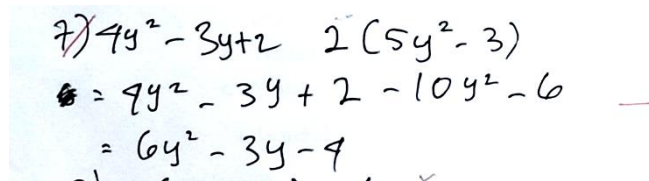 7) 4y² - 3y + 2 2 (5y² - 3)
= 4y² - 3y + 2 - 10y² - 6
= 6y² - 3y - 4